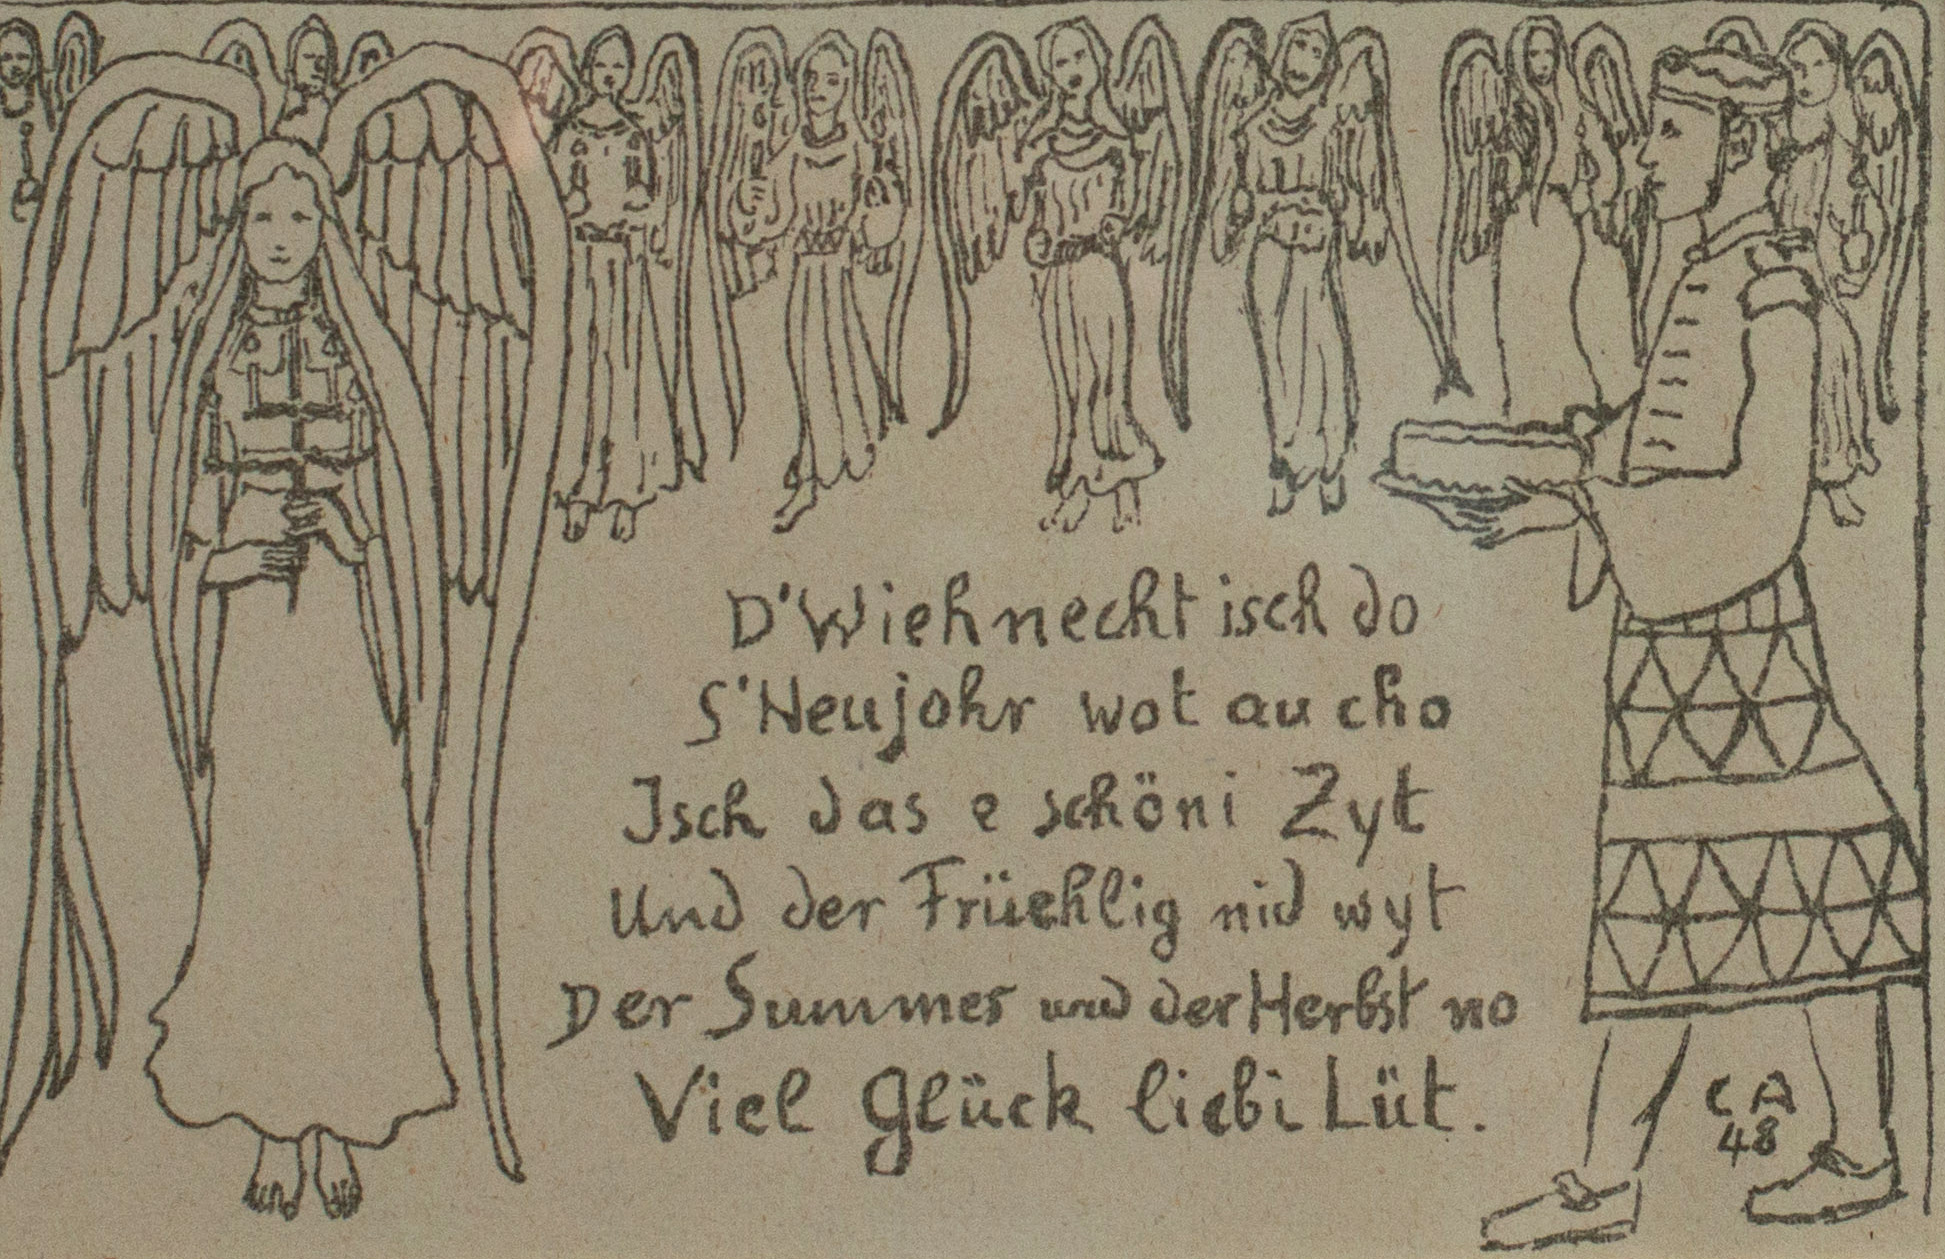 D'Wiehnecht isch do
S'Neujohr wot au cho
Isch das e schöni Zyt
Und der Früehlig nid wyt
Der Summer und der Herbst no
Viel Glück liebi Lüt.
C A
48